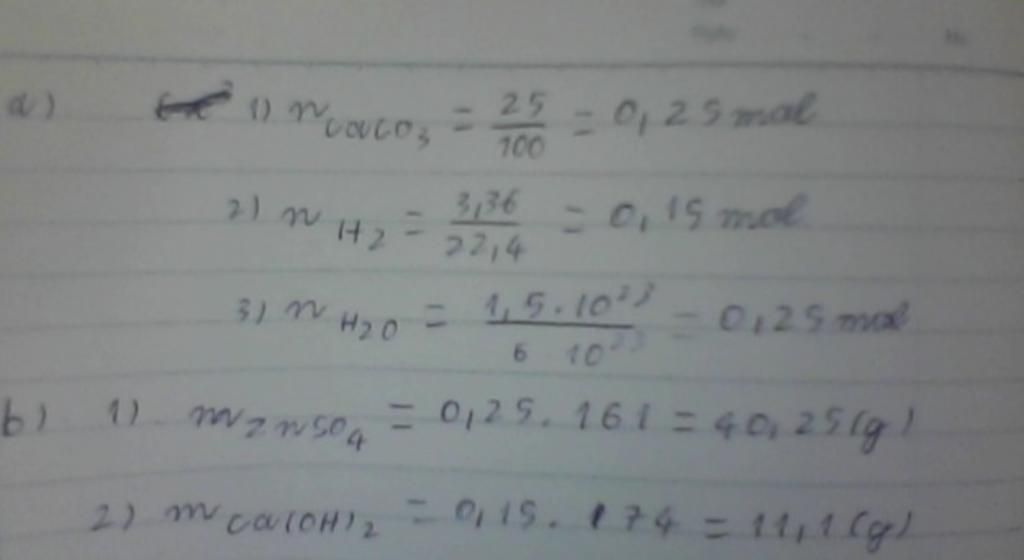 a) 1) n CaCO3 = 25/100 = 0,25 mol
2) n H2 = 3,36/22,4 = 0,15 mol
3) n H2O = 1,5.10^23/6 10^23 = 0,25 mol
b) 1) m ZnSO4 = 0,25. 161 = 40,25(g)
2) m Ca(OH)2 = 0,15. 74 = 11,1(g)